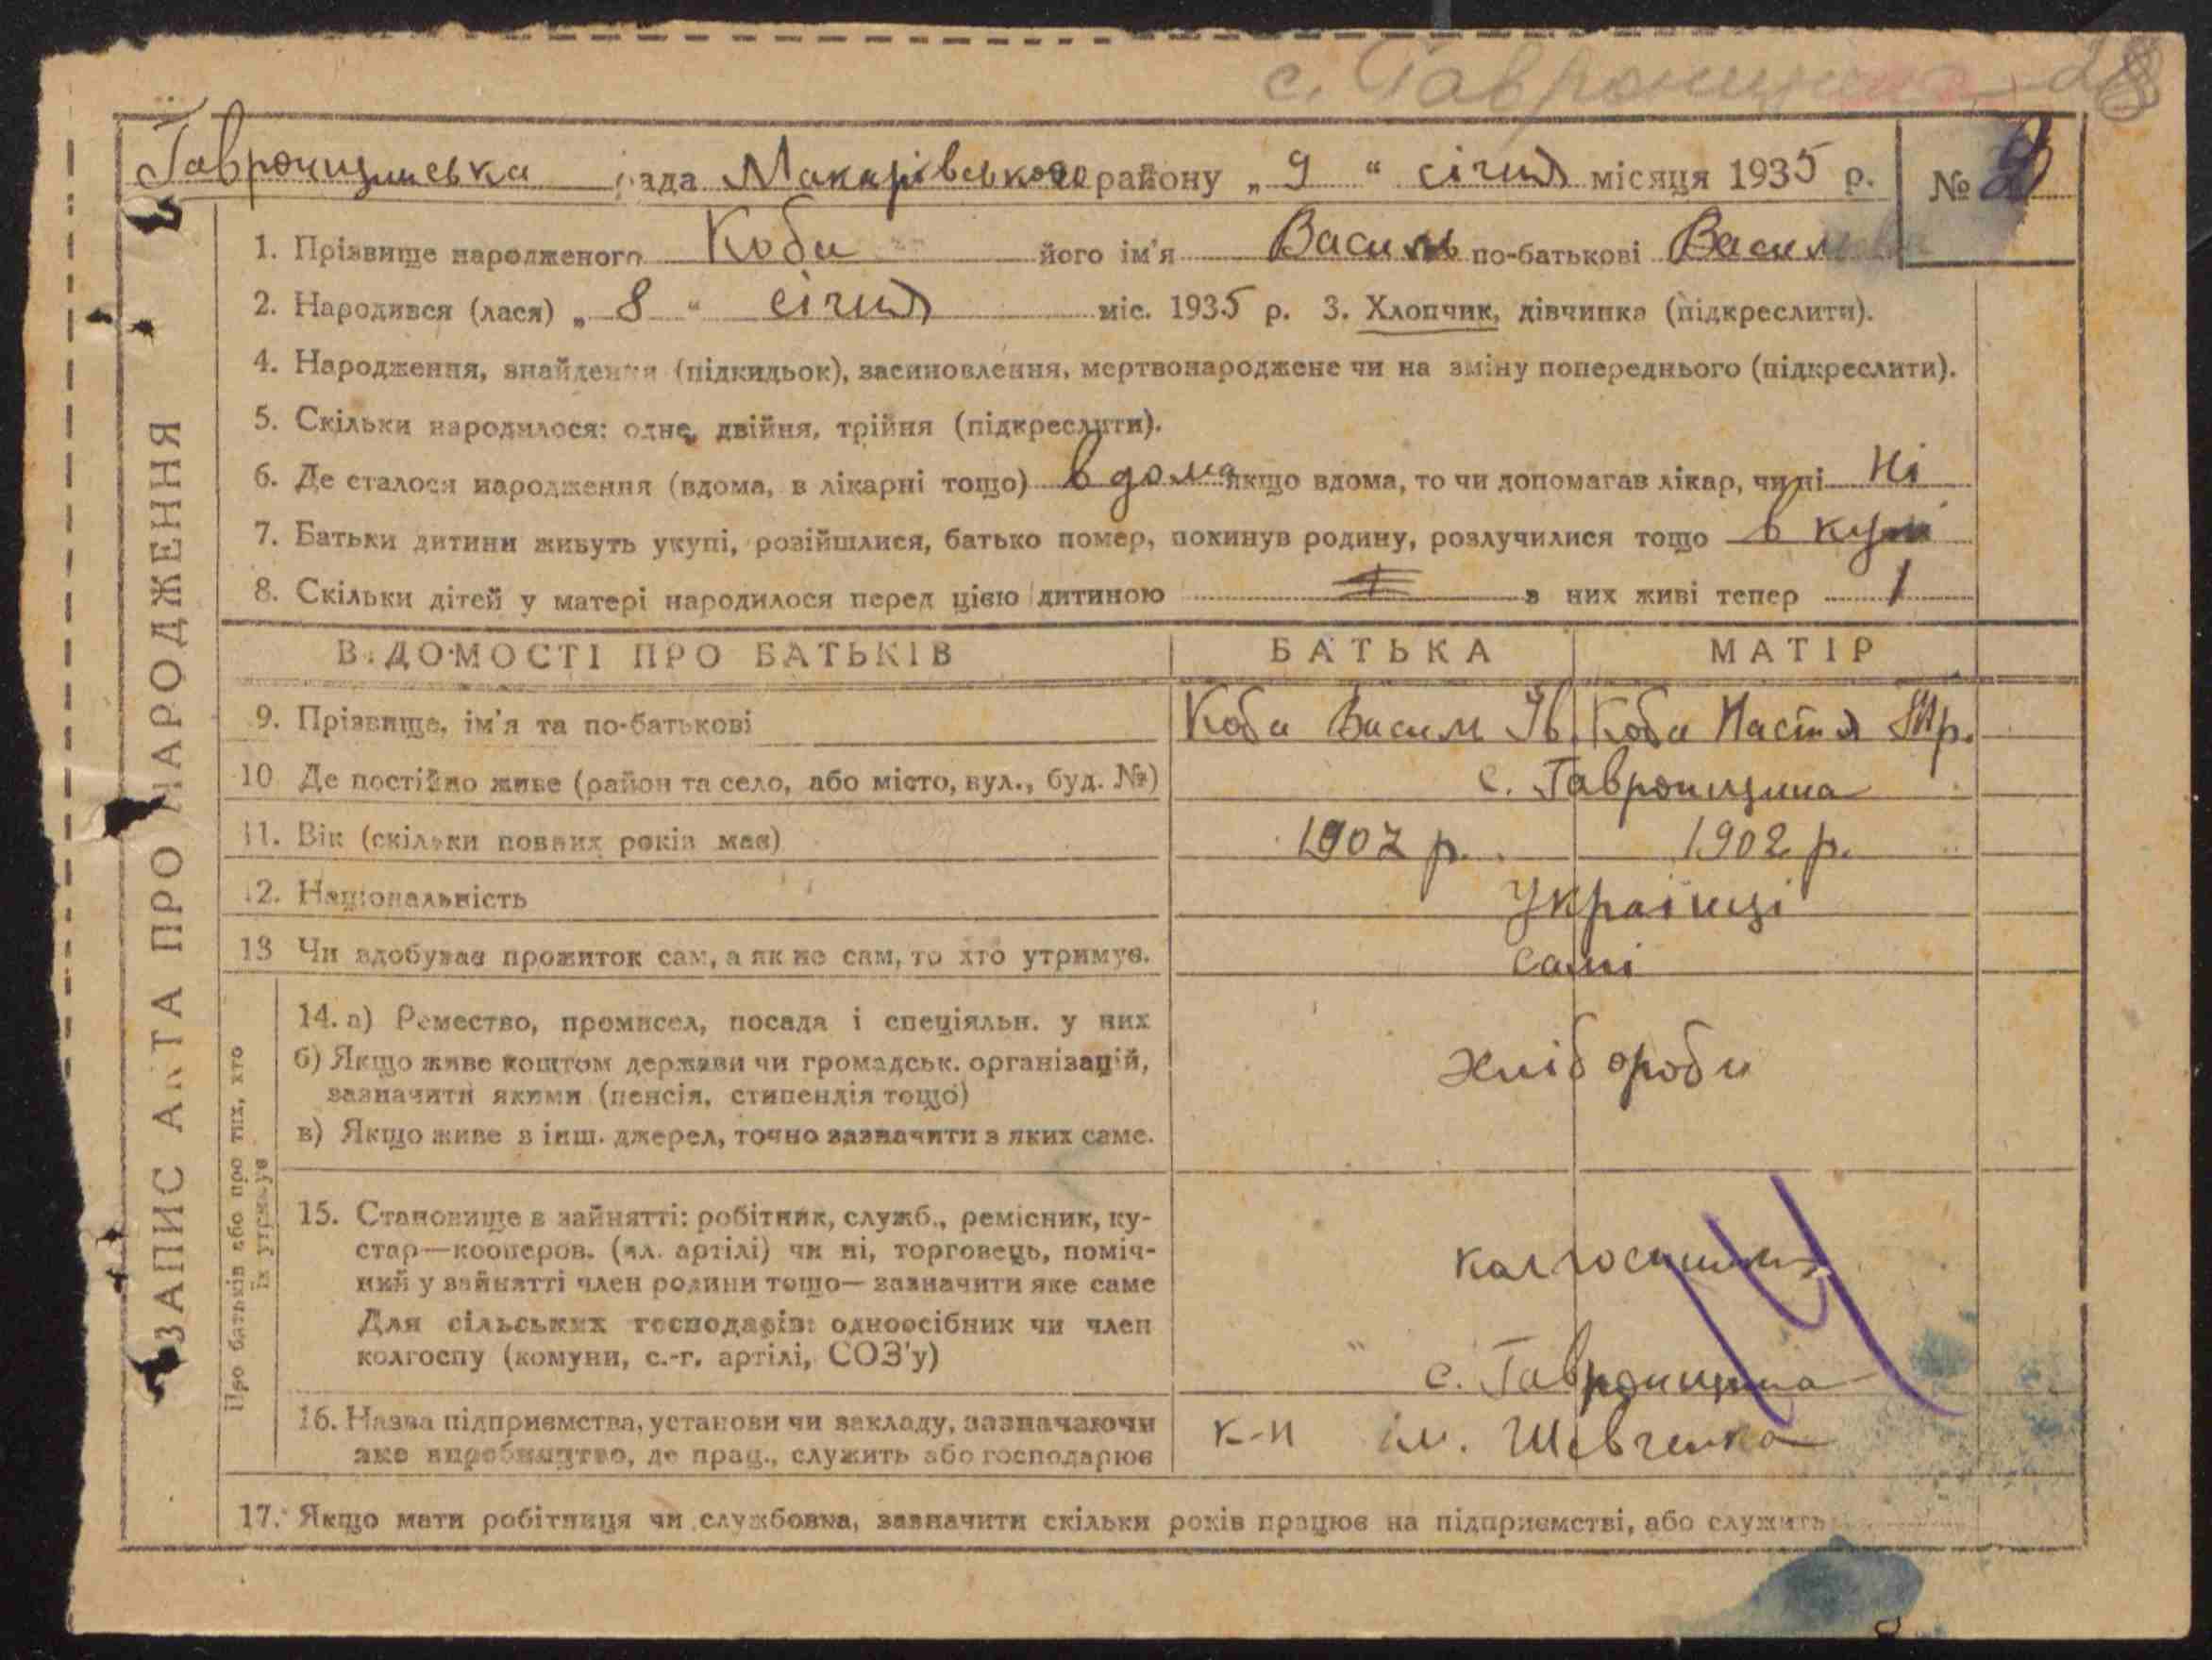 с. Гавронщина 28
Гавронщинська рада Макарівського району „ 9 “ січня місяця 1935 р. №
1. Прізвище народженого Коба його ім'я Василь по-батькові
2. Народився (лася) „ 8 “ січня міс. 1935 р. 3. Хлопчик, дівчинка (підкреслити).
4. Народження, знайдення (підкидьок), засиновлення, мертвонароджене чи на зміну попереднього (підкреслити).
5. Скільки народилося: одне, двійня, трійня (підкреслити).
6. Де сталося народження (вдома, в лікарні тощо) вдома якщо вдома, то чи допомагав лікар, чи ні Ні
7. Батьки дитини живуть укупі, розійшлися, батько помер, покинув родину, розлучилися тощо в купі
8. Скільки дітей у матері народилося перед цією дитиною з них живі тепер 1
ВІДОМОСТІ ПРО БАТЬКІВ БАТЬКА МАТІР
9. Прізвище, ім'я та по-батькові Коба Васил Ів. Коба Настя
10 Де постійно живе (район та село, або місто, вул., буд. №) с. Гавронщина
11. Вік (скільки повних років має) 1902 р. 1902 р.
12. Національність Українці
13 Чи здобуває прожиток сам, а як не сам, то хто утримує. самі
Про батьків або про тих, хто
їх утримує
14. а) Ремество, промисел, посада і спеціяльн. у них
б) Якщо живе коштом держави чи громадськ. організацій,
зазначити якими (пенсія, стипендія тощо) хлібороби
в) Якщо живе з інш. джерел, точно зазначити з яких саме.
15. Становище в зайнятті: робітник, служб., ремісник, ку-
стар—кооперов. (чл. артілі) чи ні, торговець, поміч-
ний у зайнятті член родини тощо— зазначити яке саме
Для сільських господарів: одноосібник чи член
колгоспу (комуни, с.-г. артілі, СОЗ'у)
с. Гавронщина
16. Назва підприємства, установи чи закладу, зазначаючи
яке виробництво, де прац., служить або господарює к-п ім. Шевченка
17. Якщо мати робітниця чи службовка, зазначити скільки років працює на підприємстві, або служить
ЗАПИС АКТА ПРО НАРОДЖЕННЯ